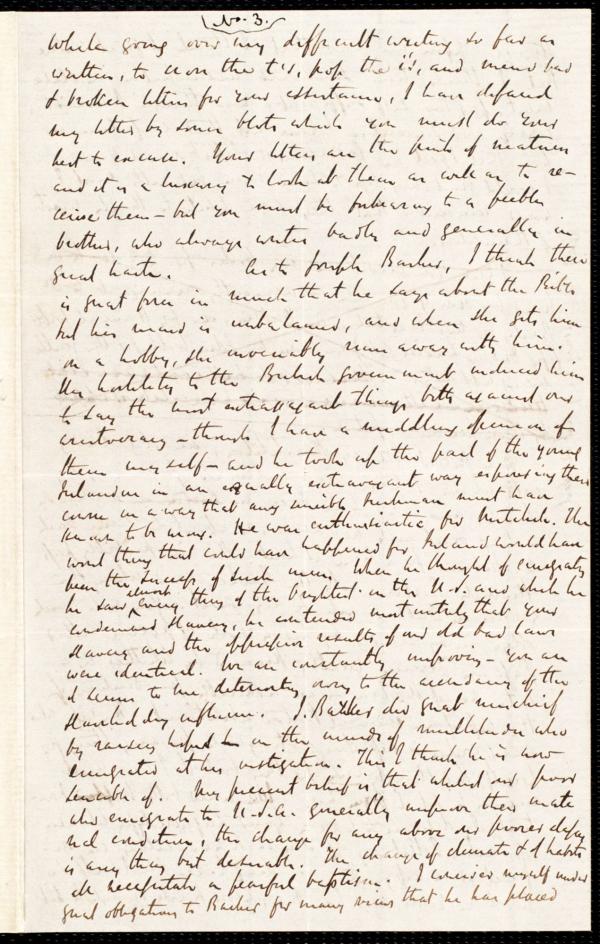 No. 3.
While going over my difficult writing so far as
written, to cross the t's, pop the i's, and mend bad
& broken letters for your assistance, I have defaced
my letter by some blots which you must do your
best to excuse. Your letters are the pink of neatness
and it is a luxury to look at them as well as to re-
ceive them - but you must be forbearing to a feebler
brother, who always writes badly and generally in
great haste. As to Joseph Barker, I think there
is great force in much that he says about the Bible
but his mind is unbalanced, and when she gets him
on a hobby, she invariably runs away with him.
His hostility to the British government induced him
to say the most extravagant things both against our
aristocracy - though I have a middling opinion of
them myself - and he took up the part of the young
Irelanders in an equally extravagant way espousing their
cause in a way that any sensible Irishman must have
known to be wrong. He was enthusiastic for Mitchel. The
worst thing that could have happened for Ireland would have
been the success of such men. When he thought of emigrating
he saw almost every thing of the brightest in the U.S. and while he
condemned slavery, he contended most untruly that your
slavery and the oppressive results of our old bad laws
were identical. We are constantly improving - you are
it seems to me deteriorating owing to the ascendancy of the
slaveholding influence. J. Barker did great mischief
by raising hopes in the minds of multitudes who
emigrated at his instigation. This I think he is now
sensible of. My present belief is that whilst our poor
who emigrate to U.S.A. generally improve their mate
rial condition, the change for any above our poorer
is any thing but desirable. The change of climate & of habits
necessitate a fearful baptism. I consider myself under
great obligations to Barker for many views that he has placed